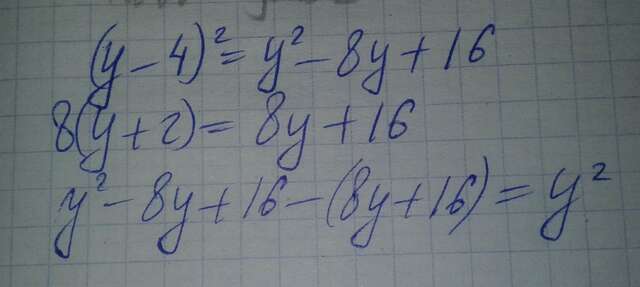 (y-4)²=y²-8y+16
8(y+2)=8y+16
y²-8y+16-(8y+16)=y²